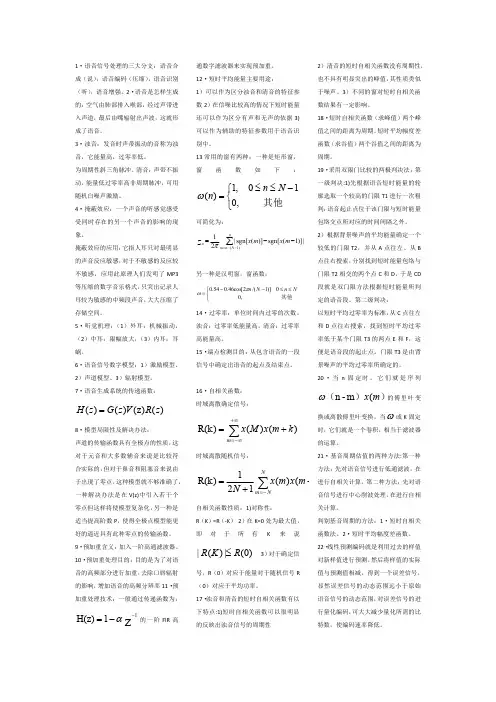 1·语音信号处理的三大分支：语音合
成（说）；语音编码（压缩）、语音识别
（听）、语音增强。2·语音是怎样生成
的：空气由肺部排入喉部，经过声带进
入声道，最后由嘴辐射出声波，这就形
成了语音。
3·浊音：发音时声带振动的音称为浊
音，它能量高，过零率低。
为周期性斜三角脉冲。清音：声带不振
动，能量低过零率高非周期脉冲，可用
随机白噪声激励。
4·掩蔽效应：一个声音的听感觉感受
受同时存在的另一个声音的影响的现
象。
掩蔽效应的应用：它指人耳只对最明显
的声音反应敏感，对于不敏感的反应较
不敏感，应用此原理人们发明了 MP3
等压缩的数字音乐格式，只突出记录人
耳较为敏感的中频段声音，大大压缩了
存储空间。
5·听觉机理：（1）外耳：机械振动，
（2）中耳：限幅放大，（3）内耳：耳
蜗。
6·语音信号数字模型：1）激励模型、
2）声道模型、3）辐射模型。
7·语音生成系统的传递函数：
H(z) = G(z)V(z)R(z)
8·模型局限性及解决办法：
声道的传输函数具有全极点的性质，这
对于元音和大多数辅音来说是比较符
合实际的；但对于鼻音和阻塞音来说由
于出现了零点，这种模型就不够准确了，
一种解决办法是在 V(z)中引入若干个
零点但这样将使模型复杂化，另一种是
适当提高阶数 P，使得全极点模型能更
好的逼近具有此种零点的传输函数。
9·预加重含义：加入一阶高通滤波器。
10·预加重处理目的：目的是为了对语
音的高频部分进行加重，去除口唇辐射
的影响，增加语音的高频分辨率 11·预
加重处理技术：一般通过传递函数为：
H(z) = 1 − α z⁻¹ 的一阶 FIR 高
通数字滤波器来实现预加重。
12·短时平均能量主要用途：
1）可以作为区分浊音和清音的特征参
数 2）在信噪比较高的情况下短时能量
还可以作为区分有声和无声的依据 3）
可以作为辅助的特征参数用于语音识
别中。
13 常用的窗有两种：一种是矩形窗，
窗函数如下：
ω(n) = { 1, 0 ≤ n ≤ N − 1
0, 其他
可简化为：
另一种是汉明窗，窗函数：
14·过零率：单位时间内过零的次数。
浊音：过零率低能量高。清音：过零率
高能量高。
15·端点检测目的：从包含语音的一段
信号中确定出语音的起点及结束点。
16·自相关函数：
时域离散确定信号：
R(k) = ∑ x(M)x(m + k)
时域离散随机信号：
自相关函数性质：1)对称性：
R（K）=R（-K） 2）在 K=0 处为最大值，
即对于所有 K 来说
|R(K)| ≤ R(0) 3）对于确定信
号，R（0）对应于能量对于随机信号 R
（0）对应于平均功率。
17·浊音和清音的短时自相关函数有以
下特点:1)短时自相关函数可以很明显
的反映出浊音信号的周期性
2）清音的短时自相关函数没有周期性，
也不具有明显突出的峰值，其性质类似
于噪声。3）不同的窗对短时自相关函
数结果有一定影响。
18·短时自相关函数（求峰值）两个峰
值之间的距离为周期。短时平均幅度差
函数（求谷值）两个谷值之间的距离为
周期。
19·采用双限门比较的两极判决法：第
一级判决:1)先根据语音短时能量的轮
廓选取一个较高的门限 T1 进行一次粗
判：语音起止点位于该门限与短时能量
包络交点所对应的时间间隔之外。
2）根据背景噪声的平均能量确定一个
较低的门限 T2，并从 A 点往左、从 B
点往右搜索，分别找到短时能量包络与
门限 T2 相交的两个点 C 和 D。于是 CD
段就是双门限方法根据短时能量所判
定的语音段。第二级判决：
以短时平均过零率为标准，从 C 点往左
和 D 点往右搜索，找到短时平均过零
率低于某个门限 T3 的两点 E 和 F。这
便是语音段的起止点，门限 T3 是由背
景噪声的平均过零率所确定的。
20·当 n 固定时，它们就是序列
ω（n-m）x(m) 的傅里叶变
换或离散傅里叶变换。当 ω 或 K 固定
时，它们就是一个卷积，相当于滤波器
的运算。
21·基音周期估值的两种方法:第一种
方法：先对语音信号进行低通滤波，在
进行自相关计算。第二种方法：先对语
音信号进行中心削波处理，在进行自相
关计算。
判别基音周期的方法：1·短时自相关
函数法，2·短时平均幅度差函数。
22·线性预测编码就是利用过去的样值
对新样值进行预测，然后将样值的实际
值与预测值相减，得到一个误差信号，
显然误差信号的动态范围远小于原始
语音信号的动态范围，对误差信号的进
行量化编码，可大大减少量化所需的比
特数，使编码速率降低。